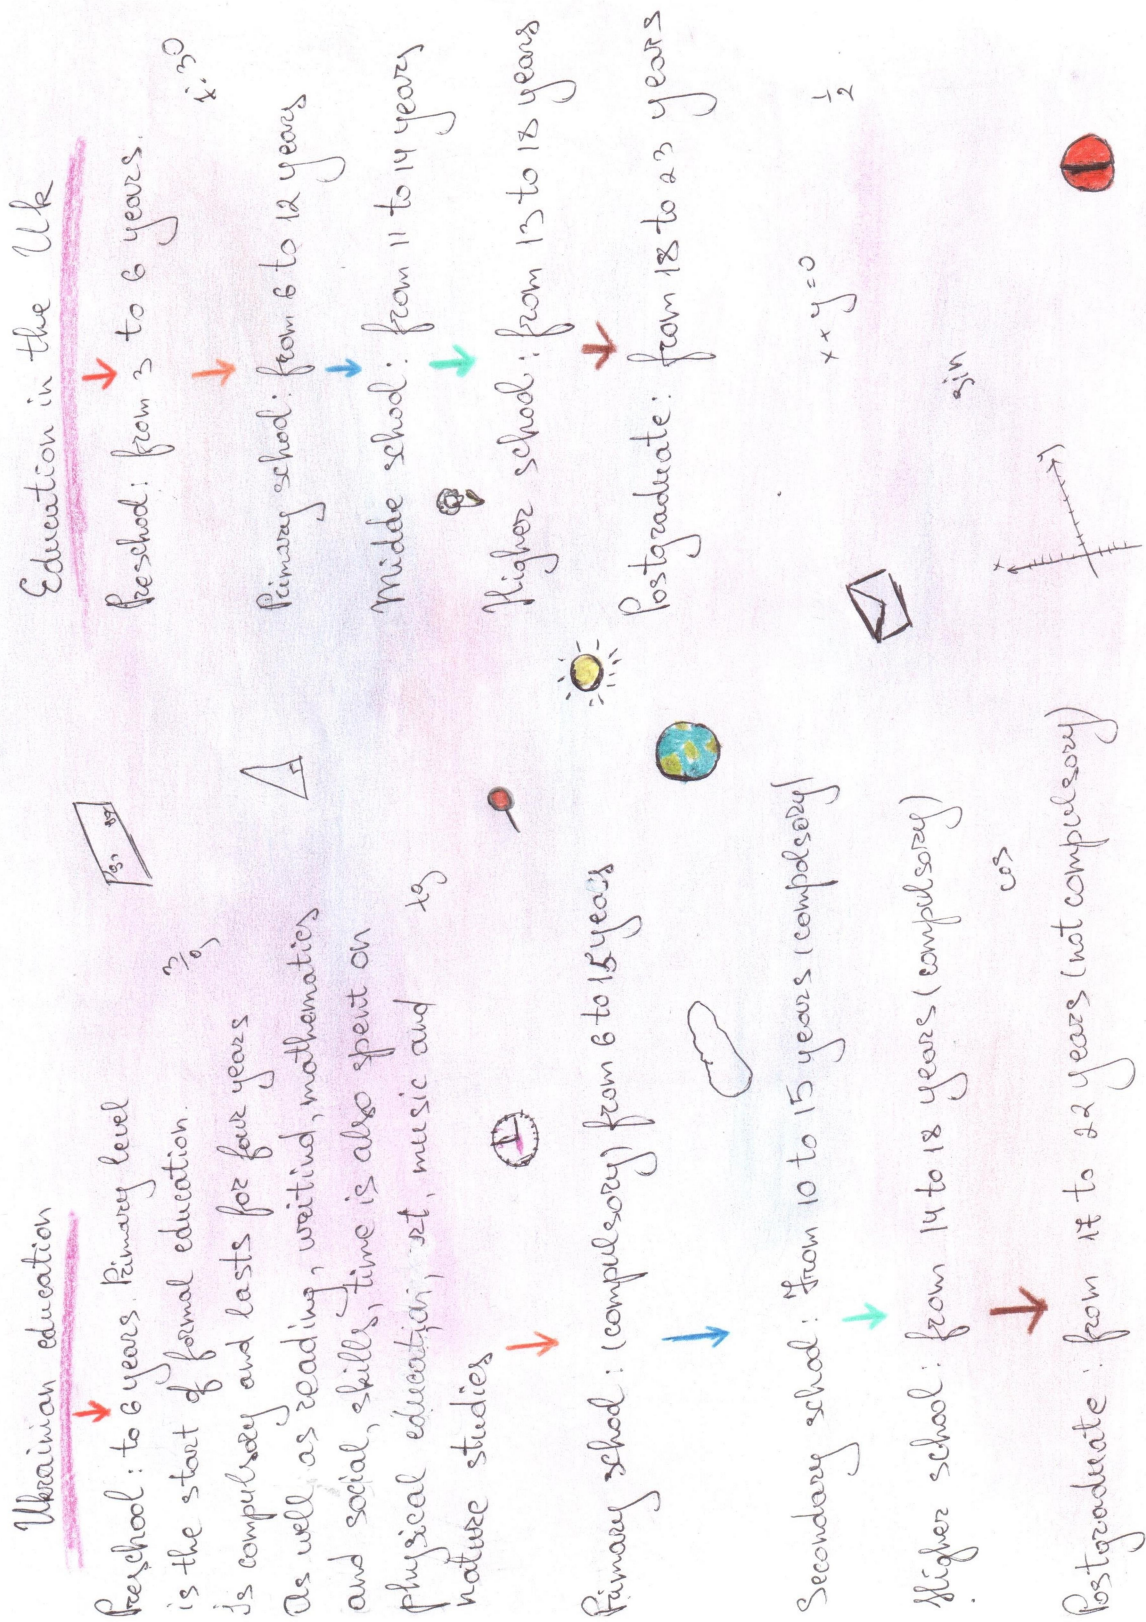 Ukrainian education
Preschool: to 6 years. Primary level
is the start of formal education.
Is compulsory and lasts for four years
As well as reading, writind, mathematics
and social, skills, time is also spent on
physical education, art, music and
nature studies
Primary school: (compulsory) from 6 to 15 years
Secondary school: From 10 to 15 years (compolsory)
Higher school: from 14 to 18 years (compulsory)
Postgraduate: from 17 to 22 years (not compulsory)
tg
cos
Education in the Uk
Preschool: from 3 to 6 years.
Primary school: from 6 to 12 years
Midde school: from 11 to 14 years
Higher school: from 13 to 18 years
Postgraduate: from 18 to 23 years
1/2
x + y = 0
sin
x
y